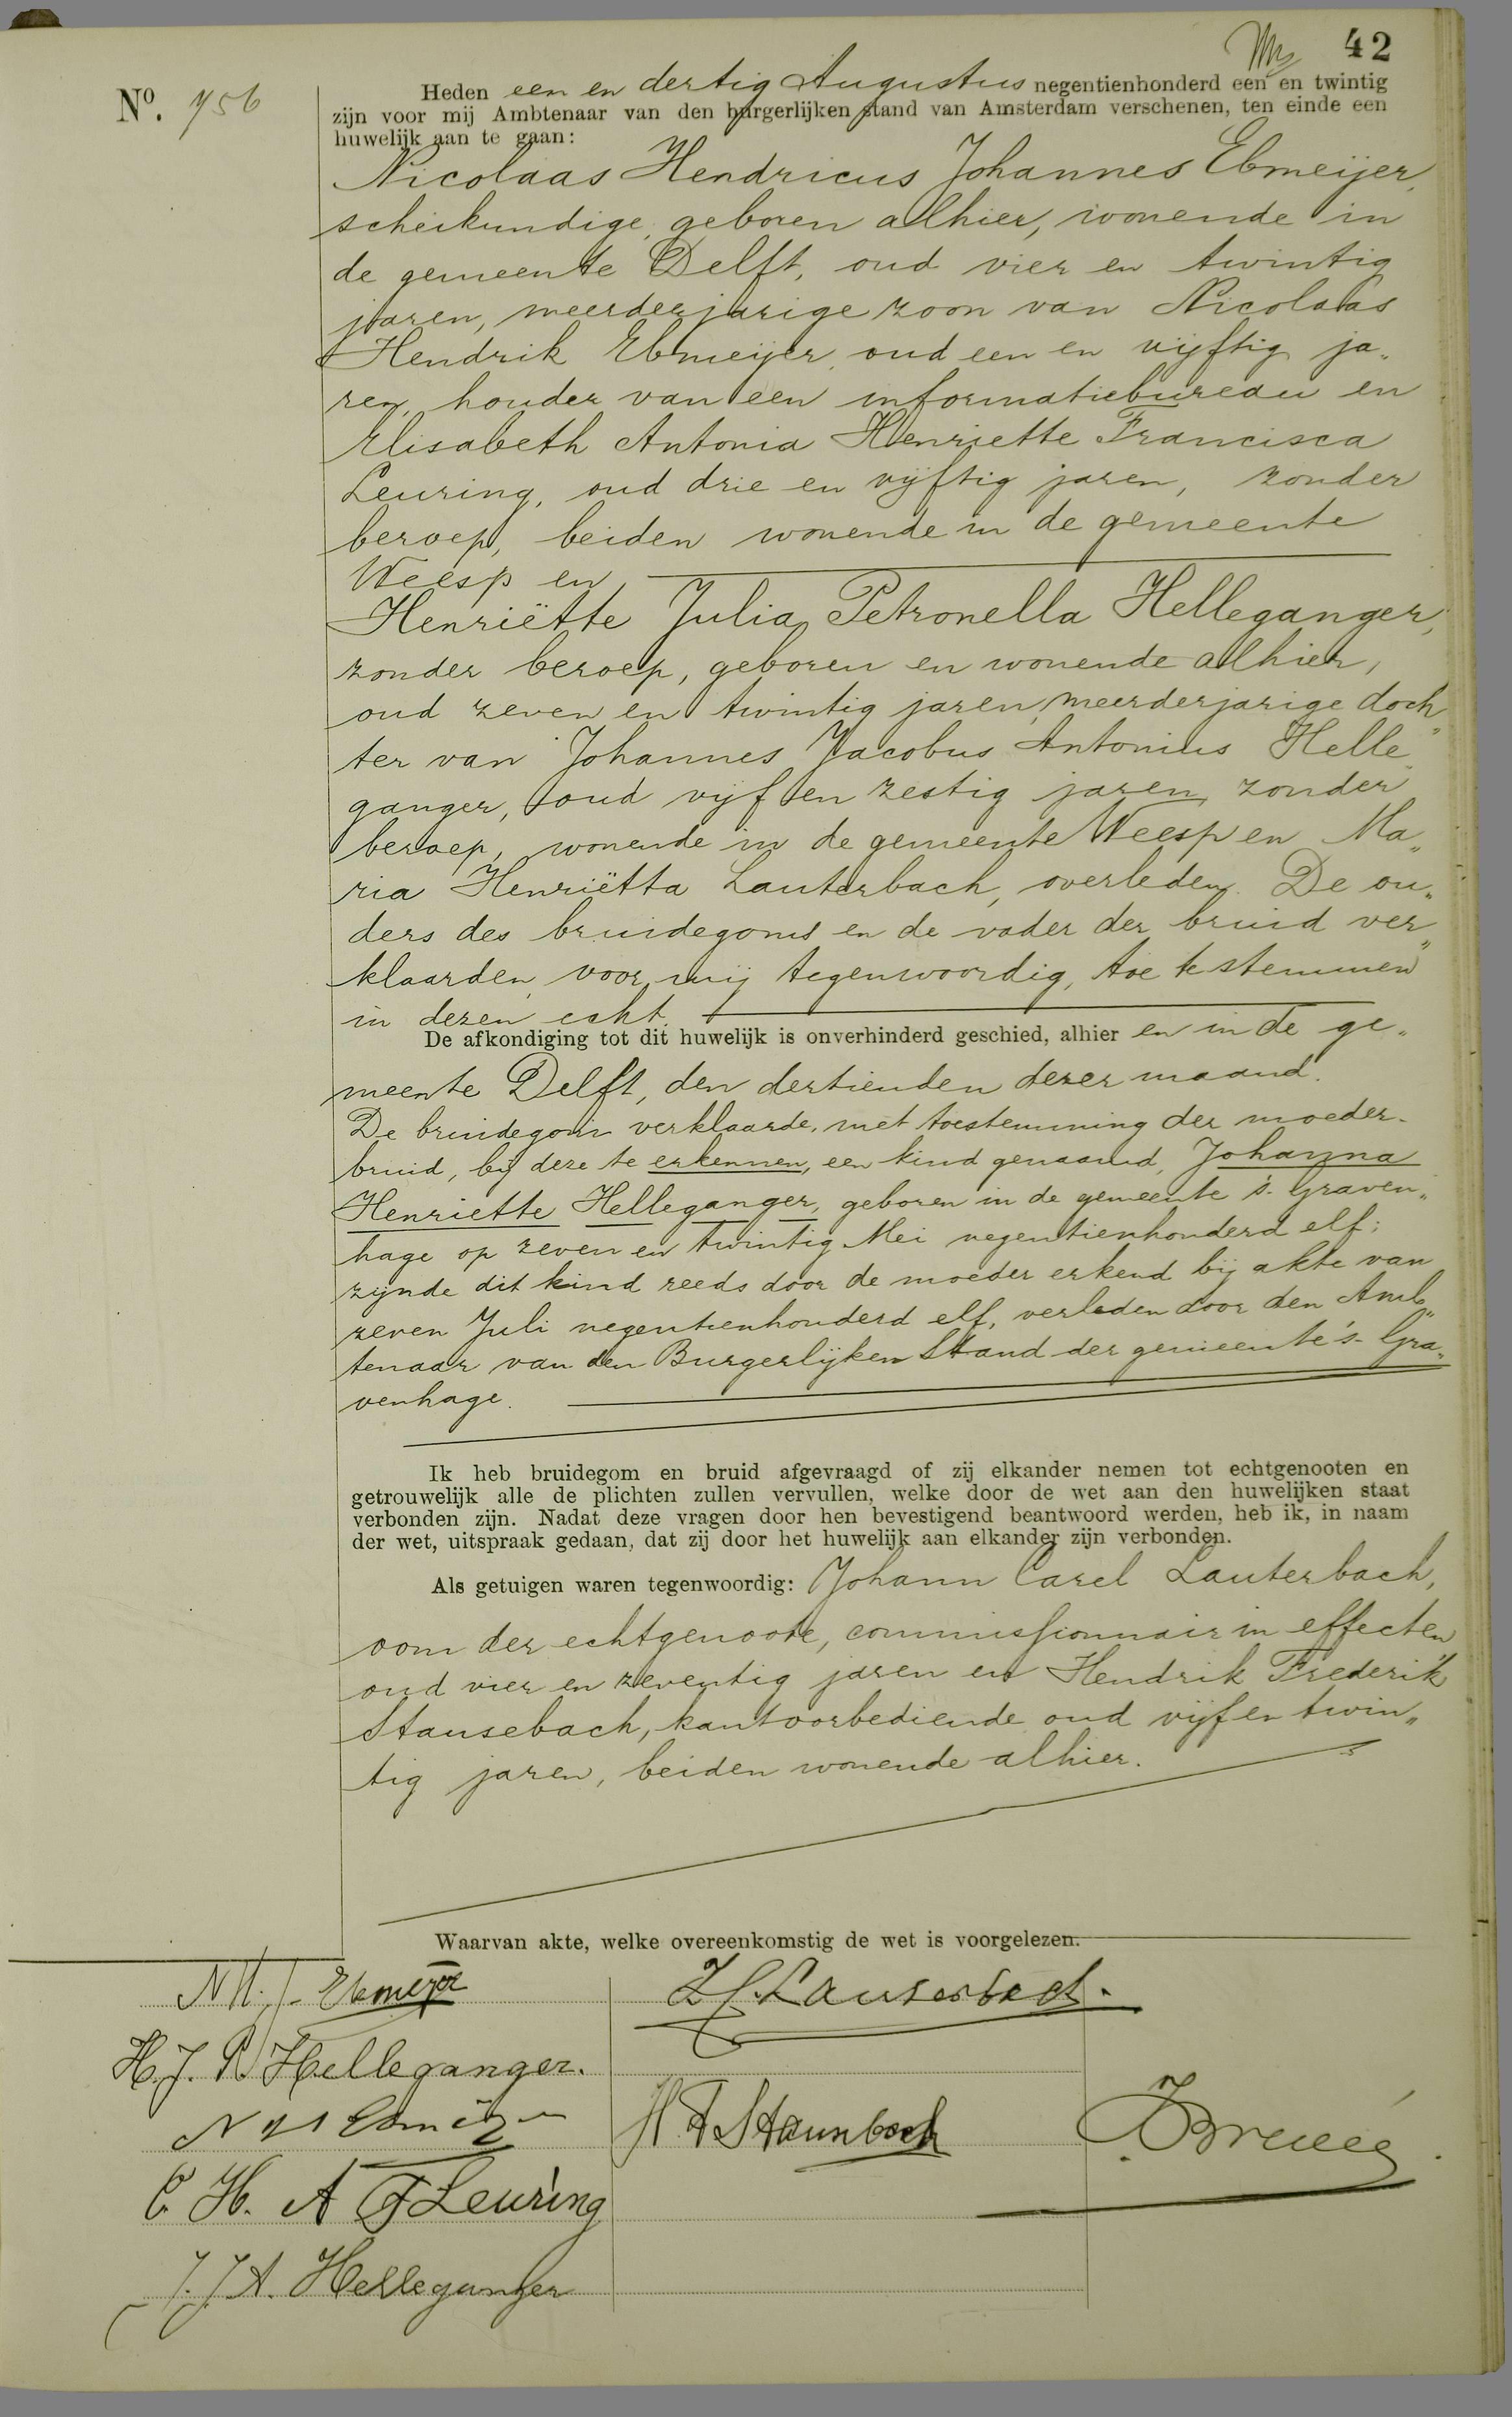 42
Nº. 756
Heden een en dertig Augustus negentienhonderd een en twintig
zijn voor mij Ambtenaar van den burgerlijken stand van Amsterdam verschenen, ten einde een
huwelijk aan te gaan:
Nicolaas Hendricus Johannes Ebmeijer,
scheikundige, geboren alhier, wonende in
de gemeente Delft, oud vier en twintig
jaren, meerderjarige zoon van Nicolaas
Hendrik Ebmeijer, oud een en vijftig ja„
ren, houder van een informatiebureau en
Elisabeth Antonia Henriette Francisca
Leuring, oud drie en vijftig jaren, zonder
beroep, beiden wonende in de gemeente
Weesp en
Henriëtte Julia Petronella Helleganger,
zonder beroep, geboren en wonende alhier,
oud zeven en twintig jaren, meerderjarige doch„
ter van Johannes Jacobus Antonius Helle„
ganger, oud vijf en zestig jaren, zonder
beroep, wonende in de gemeente Weesp en Ma„
ria Henriëtta Lauterbach, overleden. De ou„
ders des bruidegoms en de vader der bruid ver„
klaarden, voor mij tegenwoordig, toe te stemmen
in dezen echt.
De afkondiging tot dit huwelijk is onverhinderd geschied, alhier en in de ge„
meente Delft, den dertienden dezer maand.
De bruidegom verklaarde, met toestemming der moeder-
bruid, bij deze te erkennen, een kind genaamd, Johanna
Henriette Helleganger, geboren in de gemeente 's-Graven„
hage op zeven en twintig Mei negentienhonderd elf;
zijnde dit kind reeds door de moeder erkend bij akte van
zeven Juli negentienhonderd elf, verleden door den Amb„
tenaar van den Burgerlijken Stand der gemeente 's-Gra„
venhage.
Ik heb bruidegom en bruid afgevraagd of zij elkander nemen tot echtgenooten en
getrouwelijk alle de plichten zullen vervullen, welke door de wet aan den huwelijken staat
verbonden zijn. Nadat deze vragen door hen bevestigend beantwoord werden, heb ik, in naam
der wet, uitspraak gedaan, dat zij door het huwelijk aan elkander zijn verbonden.
Als getuigen waren tegenwoordig: Johann Carel Lauterbach,
oom der echtgenoote, commissionnair in effecten
oud vier en zeventig jaren en Hendrik Frederik
Stausebach, kantoorbediende oud vijf en twin„
tig jaren, beiden wonende alhier.
Waarvan akte, welke overeenkomstig de wet is voorgelezen.
N.H.J. Ebmeijer
Lauterbach.
H.J.P. Helleganger.
N H Ebmeijer
E. H. A F Leuring
J.J.A. Helleganger